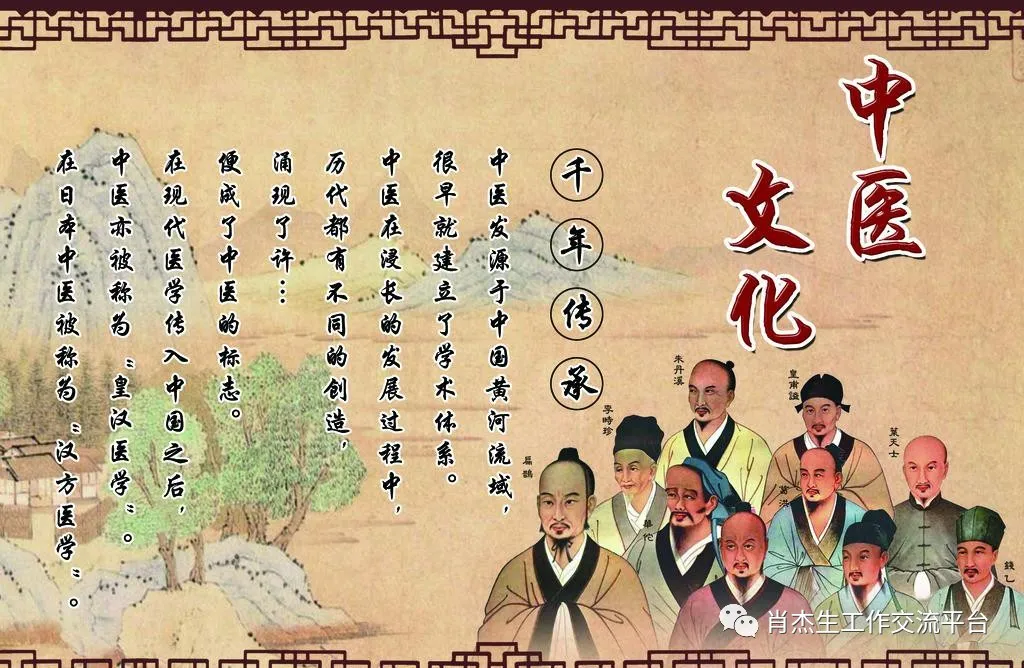 中医
文化
千年传承
中医发源于中国黄河流域，
很早就建立了学术体系。
中医在浸长的发展过程中，
历代都有不同的创造，
涌现了许…
便成了中医的标志。
在现代医学传入中国之后，
中医亦被称为“皇汉医学”。
在日本中医被称为“汉方医学”。
朱丹溪
皇甫謐
李時珍
葉天士
扁鵲
葛洪
華佗
錢乙
肖杰生工作交流平台